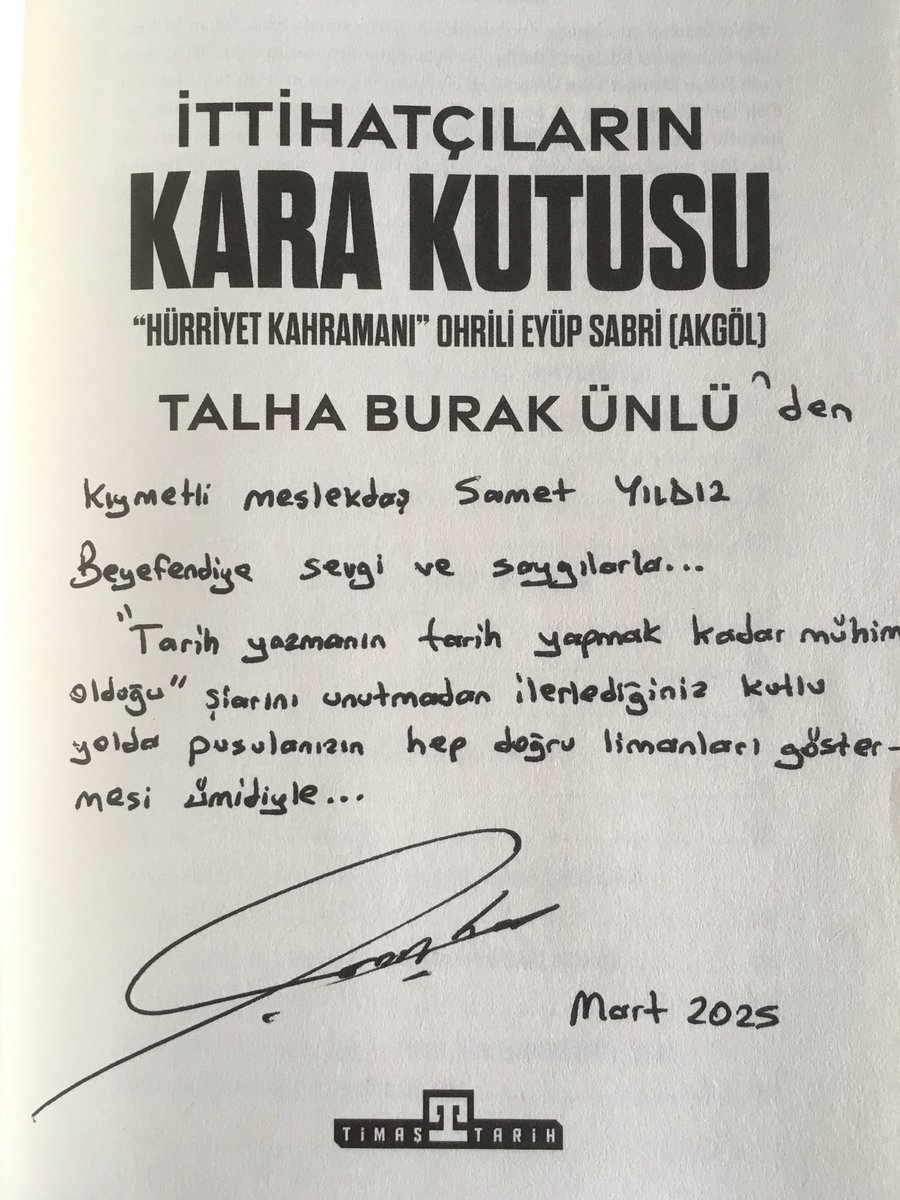 İTTİHATÇILARIN
KARA KUTUSU
“HÜRRİYET KAHRAMANI” OHRİLİ EYÜP SABRİ (AKGÖL)
TALHA BURAK ÜNLÜ'den
Kıymetli meslekdaş Samet YILDIZ
Beyefendiye sevgi ve saygılarla...
"Tarih yazmanın tarih yapmak kadar mühim
olduğu" şiarını unutmadan ilerlediğiniz kutlu
yolda pusulanızın hep doğru limanları göster-
mesi ümidiyle...
Mart 2025
TİMAŞ TARİH